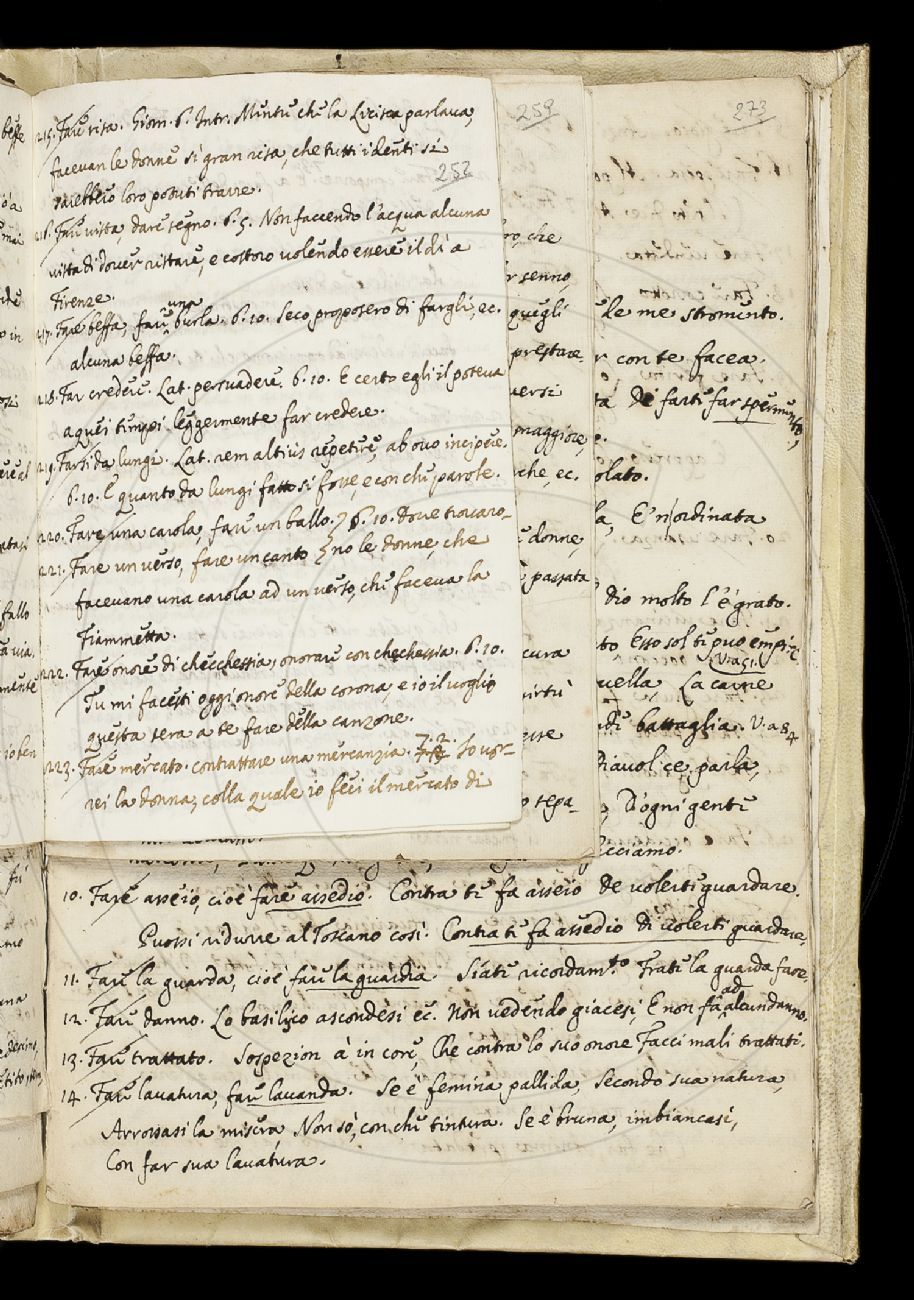 215. Fare risa. Giorn. 6. Intr. Mentre che la Licisca parlava,
facevan le donne sì gran risa, che tutti i denti si
252
sarebbero loro potuti trarre.
216. Fare vista, dare segno. 6. 5. Non faccendo l'acqua alcuna
vista di dover ristare, e costoro volendo essere il dì a
Firenze.
217. Fare beffa, fare una burla. 6. 10. Seco proposero di fargli, ec.
alcuna beffa.
218. Far credere. Lat. persuadere. 6. 10. E certo egli il poteva
a quei tempi leggermente far credere.
219. Farsi da lungi. Lat. rem altius repetere, ab ovo incipere.
6. 10. E quanto da lungi fatto si fosse, e con che parole.
220. Fare una carola, fare un ballo. 6. 10. Dove trovaro-
221. Fare un verso, fare un canto no le donne, che
facevano una carola ad un verso, che faceva la
Fiammetta.
222. Fare onore di checchessia, onorare con chechessia. 6. 10.
Tu mi facesti oggi onore della corona, e io il voglio
questa sera a te fare della canzone.
223. Fare mercato. contrattare una mercanzia. 7. 2. Io vor-
rei la donna, colla quale io feci il mercato di
259
che
senno,
quegli
prestare
versi
maggiore,
che, ec.
donne,
passata
cura
virtù
sepa-
273
le me stromento.
con te facea.
di farti far sperimento,
olato.
E n'ordinata
dio molto l'è grato.
Esso sol ti può empir
V. a 51.
La carne
di battaglia. V. a 84
Diavol ce parla,
D'ogni gente
cciamo.
10. Fare asseio, cioè fare assedio. Contra te fa asseio De volerti guardare.
Puossi ridurre al Toscano così. Contra te fa assedio di volerti guardare.
11. Fare la guarda, cioè fare la guardia. Siate ricordam.to Frate la guarda fare.
12. Fare danno. Lo basilico ascondesi ec. Non vedendo giacesi, E non fa ad alcun danno.
13. Fare trattato. Sospezion à in core, Che contra lo suo onore Facci mali trattati.
14. Fare lavatura, fare lavanda. Se è femina pallida, Secondo sua natura,
Arrossasi la misera, Non sò, con che tintura. Se è bruna, imbiancasi,
Con far sua lavatura.